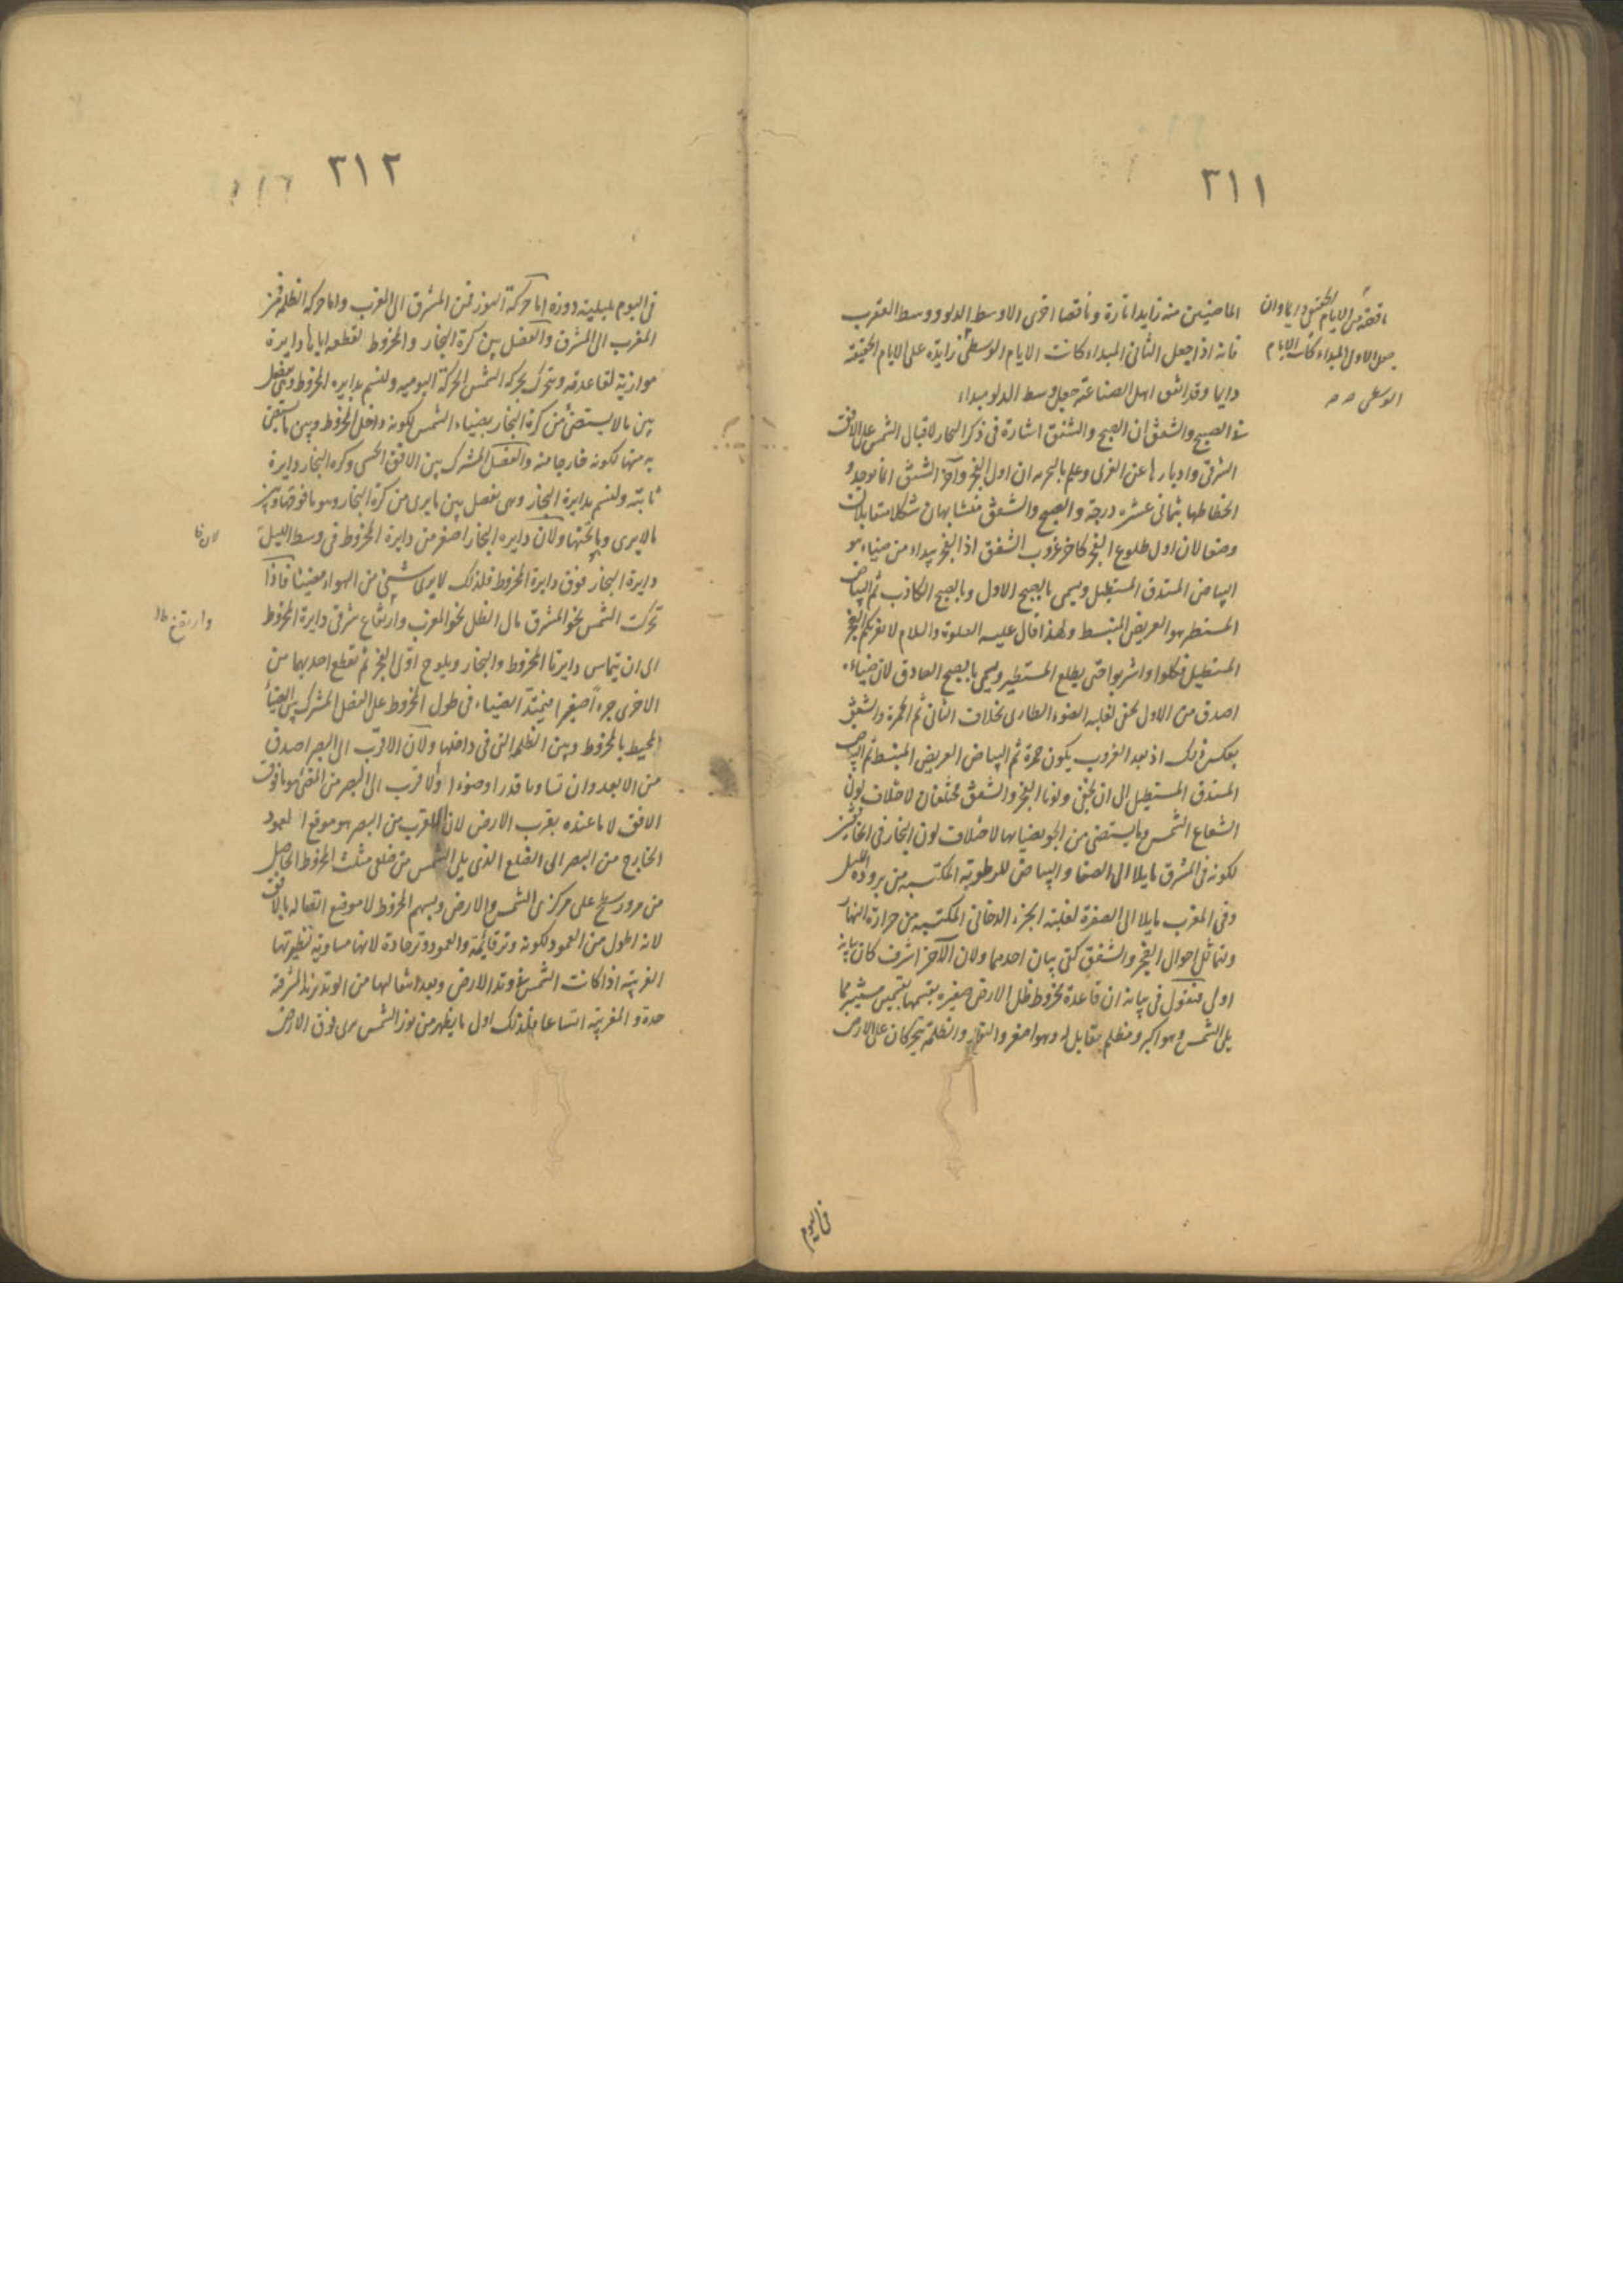 ٣١١
الماضيتين منه زايدا تارة وناقصا اخرى الا وسط الدلو ووسط العقرب
فانه اذا جعل الثانى المبداء كانت الايام الوسطى زايدة على الايام الحقيقة
دايما وقد اتفق اهل الصناعة جعل وسط الدلو مبداء
الصبح والشفق ان الصبح والشفق اشارة فى ذكر البخار لاقبال الشمس على الافق
الشرقى وادبارها عن الغربى وعلم بالتجربه ان اول الفجر وآخر الشفق انما يوجد و
انحطاطها ثمانى عشره درجة والصبح والشفق متشابهان شكلا متقابلان
وضعا لان اول طلوع الفجر كاخر غروب الشفق اذ الفجر يبداء من ضياءه
البياض المستدق المستطيل ويسمى بالصبح الاول وبالصبح الكاذب ثم البياض
المستطير هو العريض المنبسط ولهذا قال عليه الصلوة والسلام لا يغرنكم الفجر
المستطيل فكلوا واشربوا حتى يطلع المستطير ويسمى بالصبح الصادق لان ضياءه
اصدق من الاول لغلبه الضوء الطارى بخلاف الثانى ثم الحمرة والشفق
بعكس ذلك اذ بعد الغروب يكون حمرة ثم البياض العريض المنبسط ثم البياض
المستدق المستطيل الى ان يخفى ولونا الفجر والشفق مختلفان لاختلاف لون
الشعاع الشمس وما يستضئ من الجو بضيائها لاختلاف لون البخار فى
لكونه فى المشرق مايلا الى الصفا والبياض للرطوبة المكتسبه من برودة الليل
وفى المغرب مايلا الى الصفرة لغلبة الجزء الدخانى المكتسبه من حرارة النهار
وتماثل احوال الفجر والشفق كفى بيان احدهما ولان الآخر اشرف كان بيانه
اولى فنقول فى بيانه ان قاعدة مخروط ظل الارض صغيره
يلى الشمس وهو اكبر ومظلم مقابل له وهو اصغر والنور والظلمة يتحركان على الارض
ناقصة من الايام الحقيقى دايما وان
جعل الاول المبداء كانت الايام
الوسطى
فى اليوم
٣١٢
فى اليوم بليلته دوره اما حركة النور فمن المشرق الى المغرب واما حركه الظلمه فمن
المغرب الى المشرق والفصل بين كرة البخار والمخروط لقطعه اياها دايرة
موازية لقاعدته ويتحرك بحركه الشمس الحركة اليوميه ولنسم بدايره المخروط وهى تفصل
بين ما لا يستضئ من كرة البخار بضياء الشمس لكونه داخل المخروط وبين ما يستضئ
به منها لكونه خارجا منه والفصل المشترك بين الافق الحسى وكره البخار دايرة
ثابتة ولنسم بدايرة البخار وهى تفصل بين ما يرى من كرة البخار وهو ما فوقها وبين
ما لا يرى وما تحتها ولان دايره البخار اصغر من دايرة المخروط فى وسط الليل
دايرة البخار فوق دايرة المخروط فلذلك لا يرى شئ من الهواء مضيئا فاذا
تحركت الشمس نحو المشرق مال الظل نحو المغرب وارتفاع شرقى دايرة المخروط
الى ان يتماس دايرتا المخروط والبخار ويلوح اول الفجر ثم تقطع احديهما من
الاخرى جزءا صغيرا فيمتد الضياء فى طول المخروط على الفصل المشترك بين الضياء
المحيط بالمخروط وبين الظلمه التى فى داخلها ولان الاقرب الى البصر اصدق
من الابعد وان تساويا قدرا وضوءا ولاقرب الى البصر من المضئ هو ما فوق
الافق لا ما عنده بقرب الارض لان الاقرب من البصر هو موقع العمود
الخارج من البصر الى الضلع الذى يلى الشمس من ضلعى مثلث المخروط الحاصل
من مرور سطح على مركزى الشمس والارض وبسهم المخروط لا موضع اتصاله بالافق
لانه اطول من العمود لكونه وتر قائمة والعمود وتر حادة لانها مساوية لنظيرتها
الغربية اذا كانت الشمس على وتد الارض وبعد انتقالها من الوتد تزيد الشرقية
حدة والمغربية اتساعا فلذلك اول ما يظهر من نور الشمس يرى فوق الارض
لان
وارتفع